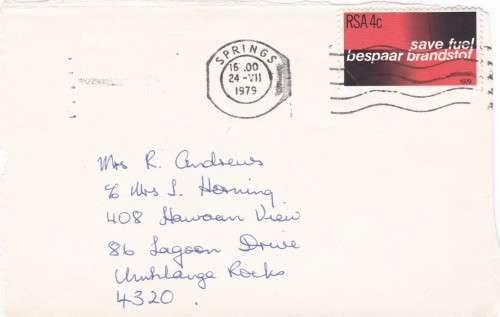 RSA 4c
save fuel
bespaar brandstof
1979
SPRINGS
16.00
24-VII
1979
Mrs R. Andrews
℅ Mrs S. Horning
408 Hawaan View
86 Lagoon Drive
Umhlanga Rocks
4320.